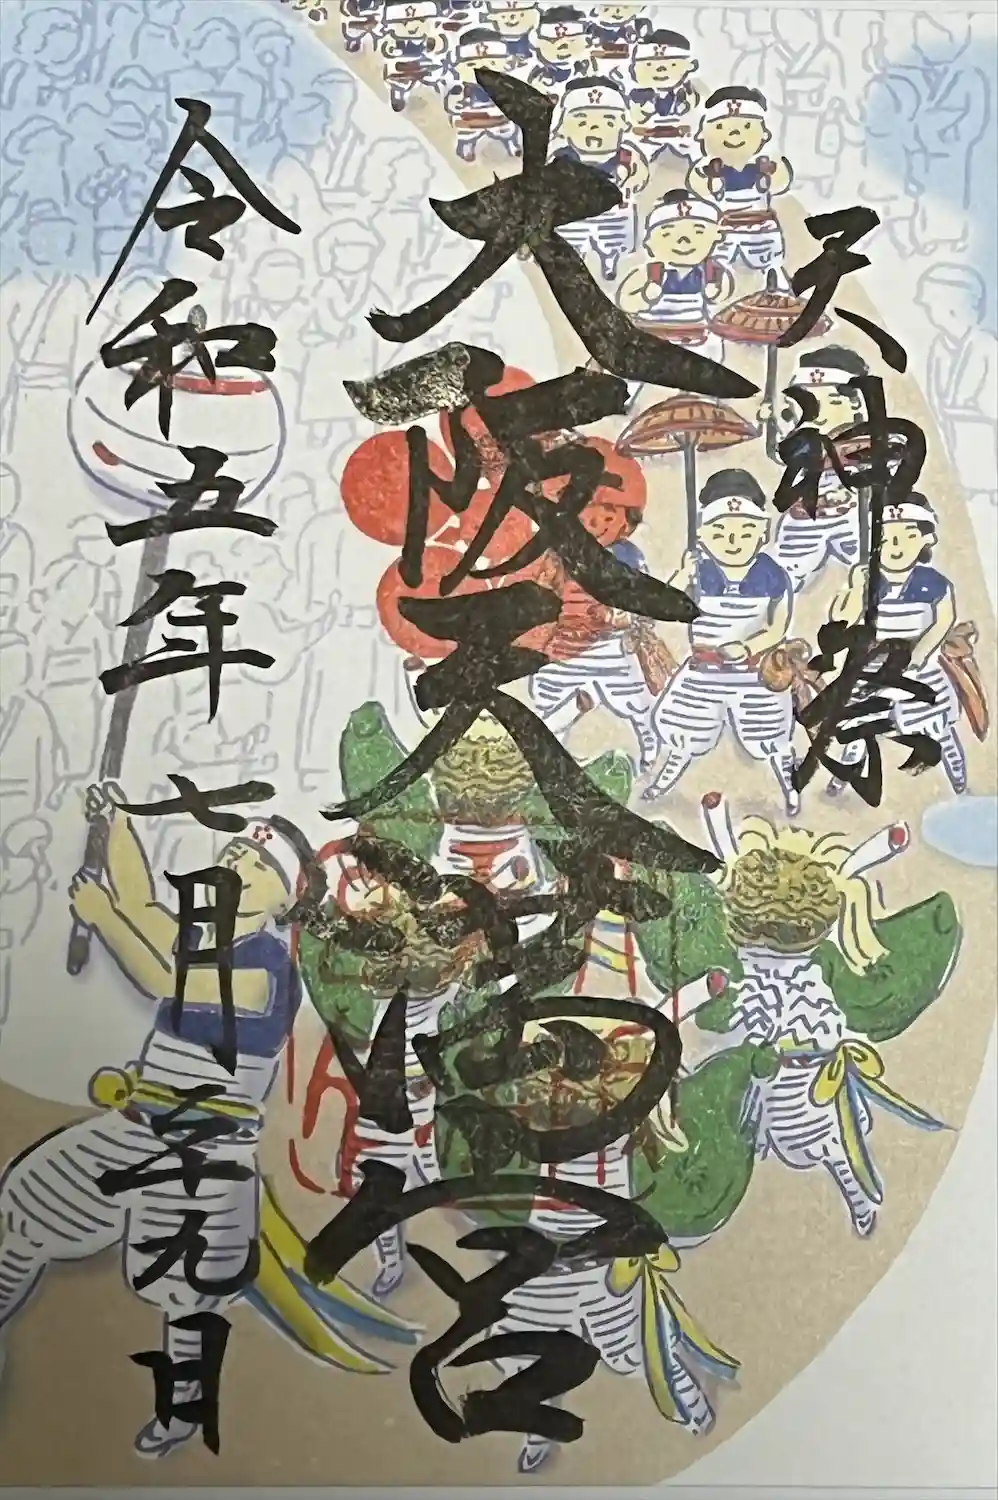 天神祭
大阪天満宮
令和五年七月二十九日